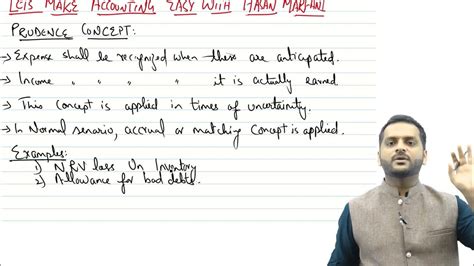 LETS MAKE ACCOUNTING EASY WITH HASAN MARFANI
PRUDENCE CONCEPT:
→ Expense shall be recognized when these are anticipated.
→ Income " " " " it is actually earned
→ This concept is applied in times of uncertainity.
→ In Normal senario, accrual or matching concept is applied.
Examples:
1) NRV loss On Inventory
2) Allowance for bad debts.